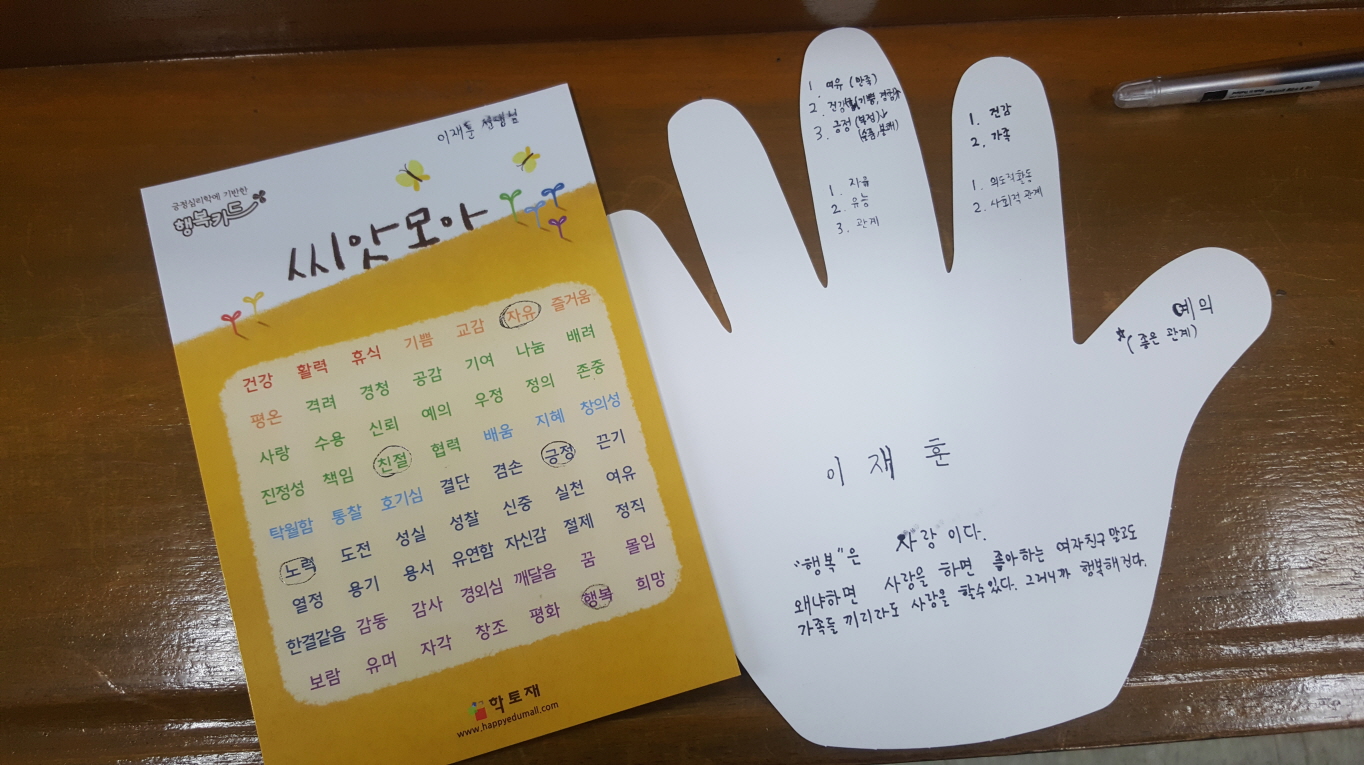 이재훈 선생님
긍정심리학에 기반한
행복카드
씨앗모아
건강 활력 휴식 기쁨 교감 자유 즐거움
평온 격려 경청 공감 기여 나눔 배려
사랑 수용 신뢰 예의 우정 정의 존중
진정성 책임 친절 협력 배움 지혜 창의성
탁월함 통찰 호기심 결단 겸손 긍정 끈기
노력 도전 성실 성찰 신중 실천 여유
열정 용기 용서 유연함 자신감 절제 정직
한결같음 감동 감사 경외심 깨달음 꿈 몰입
보람 유머 자각 창조 평화 행복 희망
학토재
www.happyedumall.com
1. 여유 (만족)
2. 건강(기쁨, 긍정)↑
3. 긍정 (부정)↓
(슬픔, 분노)
1. 자유
2. 유능
3. 관계
1. 건강
2. 가족
1. 의도적활동
2. 사회적 관계
예의
*(좋은 관계)
이 재 훈
"행복"은 사랑 이다.
왜냐하면 사랑을 하면 좋아하는 여자친구 말고도
가족들 끼리라도 사랑을 할수있다. 그러니까 행복해진다.